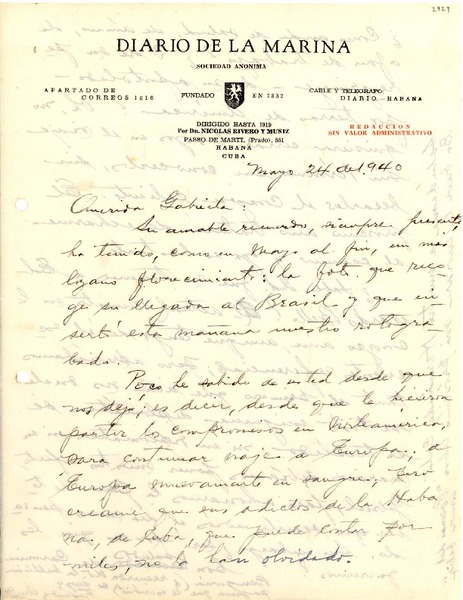 2929
DIARIO DE LA MARINA
SOCIEDAD ANONIMA
APARTADO DE
CORREOS 1616
FUNDADO EN 1832
CABLE Y TELEGRAFO
DIARIO - HABANA
DIRIGIDO HASTA 1919
Por Dn. NICOLAS RIVERO Y MUÑIZ
PASEO DE MARTI, (Prado), 551
HABANA
CUBA
REDACCION
SIN VALOR ADMINISTRATIVO
Mayo 24 de 1940
Querida Gabriela:
Su amable recuerdo, siempre presente,
ha tenido, como en Mayo al fin, un más
lozano florecimiento: la foto. que reco-
ge su llegada al Brasil y que in-
sertó esta mañana nuestro rotogra-
bado.
Poco he sabido de usted desde que
nos dejó; es decir, desde que le hicieron
partir los compromisos en Norteamérica,
para continuar viaje a Europa; a
Europa nuevamente en sangre. Pero
créame que sus adictos de la Haba-
na, de Cuba, que puede contar por
miles, no la han olvidado.